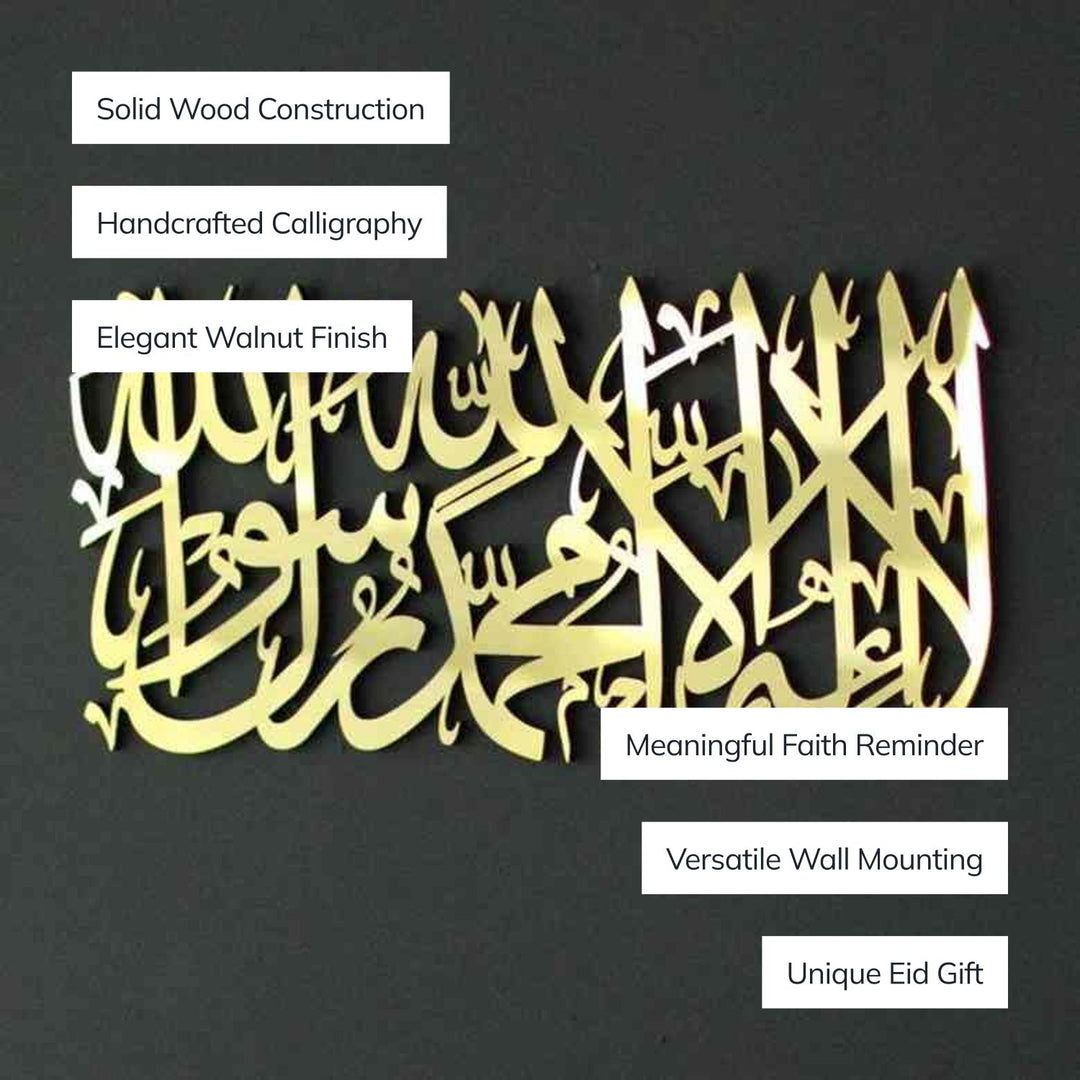 Solid Wood Construction
Handcrafted Calligraphy
Elegant Walnut Finish
لا إله إلا الله
محمد رسول الله
Meaningful Faith Reminder
Versatile Wall Mounting
Unique Eid Gift